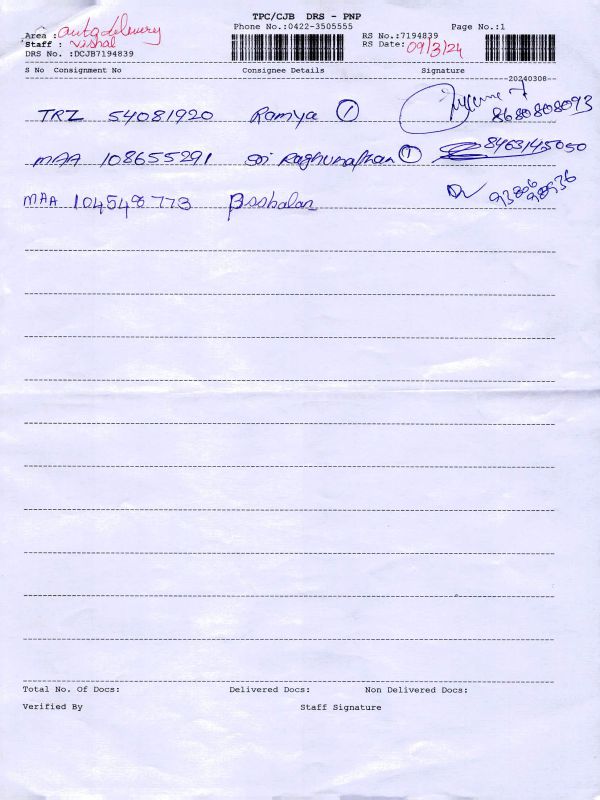 TPC/CJB DRS - PNP
Phone No.:0422-3505555 Page No.:1
Area : auto delivery RS No.:7194839
Staff : Vishal RS Date: 09/3/24
DRS No. :DCJB7194839
S No Consignment No Consignee Details Signature
20240308
TRZ 54081920 Ramya 1 8680808093
MAA 108655291 Sri Raghunathan 1 8463145050
MAA 104548773 93806 98936
Total No. Of Docs: Delivered Docs: Non Delivered Docs:
Verified By Staff Signature